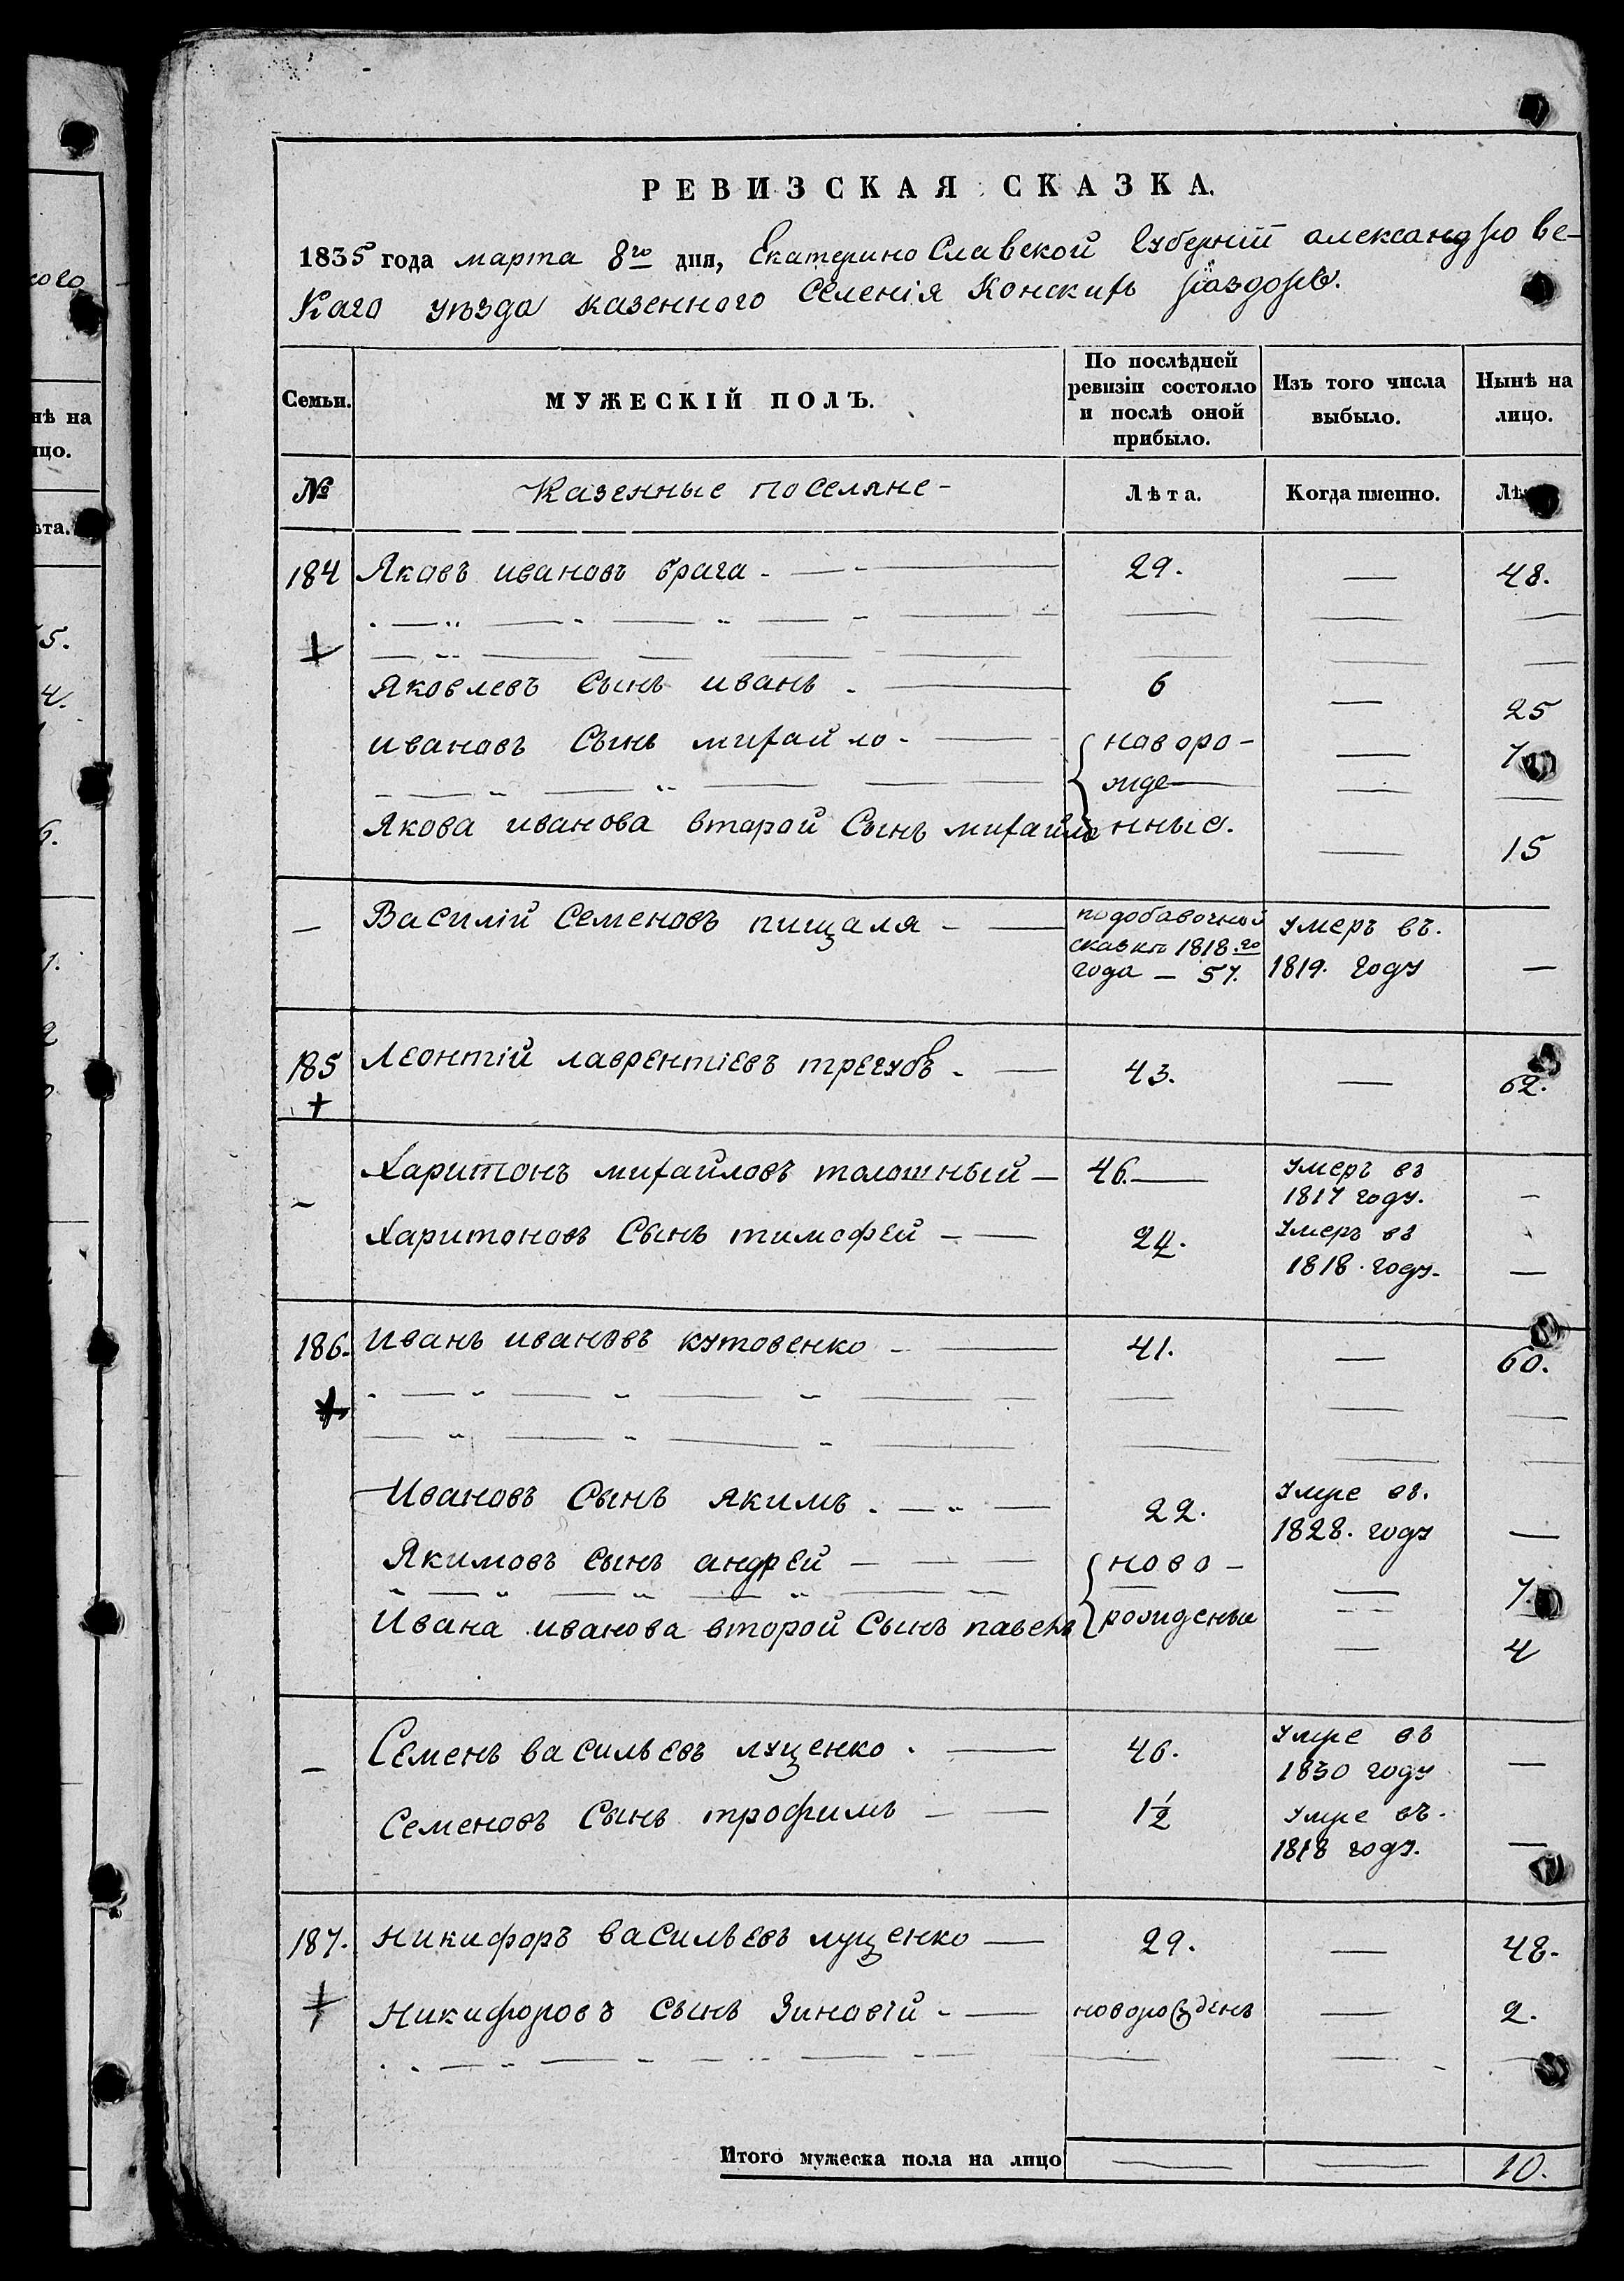 РЕВИЗСКАЯ СКАЗКА.
1835 года марта 8го дня, Екатерино Славской Губерніи александро ве-
каго уѣзда казенного Селенія Конскихъ раздоръ.
Семьи. МУЖЕСКІЙ ПОЛЪ. По послѣдней ревизіи состояло и послѣ оной прибыло. Изъ того числа выбыло. Нынѣ на лицо.
№ Казенные поселяне - Лѣта. Когда именно.
184 Яковъ ивановъ брага - 29. — 48.
Яковлевъ Сынъ иванъ - 6 — 25
ивановъ Сынъ михайло - новоро- — 7
жде-
Якова иванова второй Сынъ михайло нные. — 15
— Василій Семеновъ пищаля - по добавочной сказкѣ 1818го года — 57. умеръ въ. 1819. году —
185 Леонтій лаврентіевъ трегубъ - 43. — 62.
— Харитонъ михайловъ толошный — 46. — умеръ въ 1817 году. —
Харитоновъ Сынъ тимофей — 24. умеръ въ 1818. году. —
186. Иванъ ивановъ кутовенко - 41. — 60.
Ивановъ Сынъ якимъ. 22. умре въ. 1828. году —
Якимовъ сынъ андрей — ново- — 7.
Ивана иванова второй Сынъ павелъ рожденые — 4
— Семенъ васильевъ луценко. 46. умре въ 1830 году —
Семеновъ Сынъ трофимъ — 1½ умре въ. 1818 году. —
187. никифоръ васильевъ луценко — 29. — 48.
Никифоровъ сынъ Зиновій - новорожденъ — 2.
Итого мужеска пола на лицо — — 10.